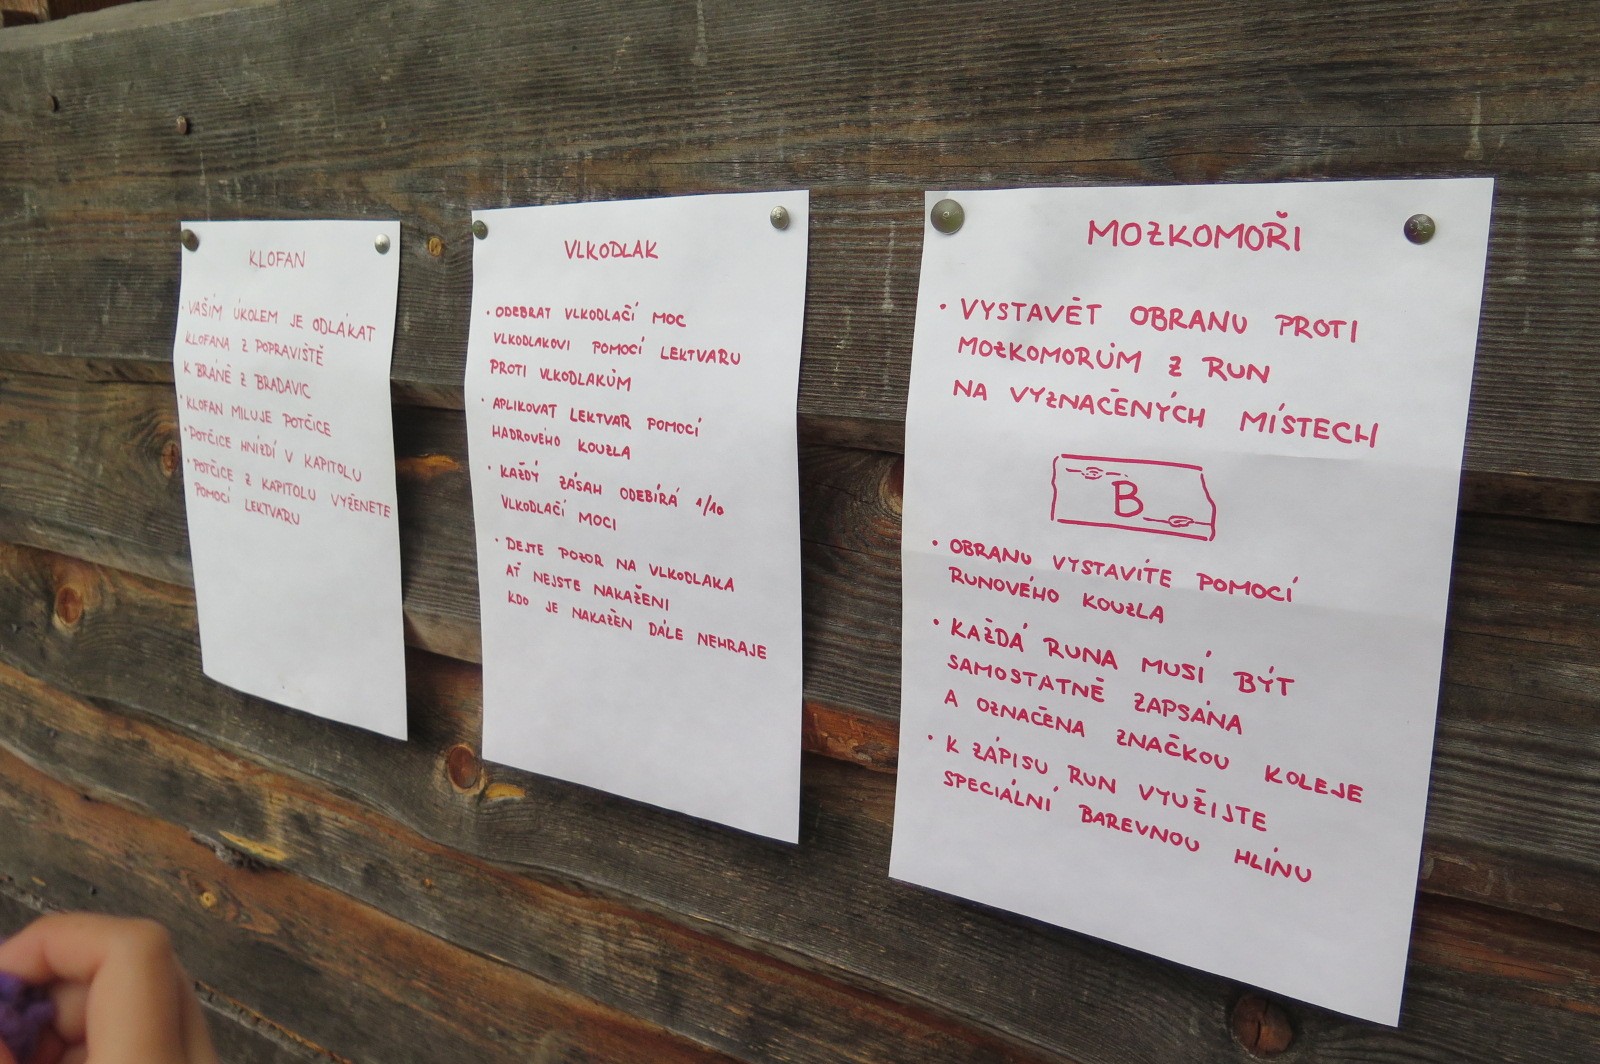 KLOFAN
• VAŠÍM ÚKOLEM JE ODLÁKAT
KLOFANA Z POPRAVIŠTĚ
K BRÁNĚ Z BRADAVIC
• KLOFAN MILUJE POTČICE
• POTČICE HNÍZDÍ V KAPITOLU
• POTČICE Z KAPITOLU VYŽENETE
POMOCÍ LEKTVARU
VLKODLAK
• ODEBRAT VLKODLAČÍ MOC
VLKODLAKOVI POMOCÍ LEKTVARU
PROTI VLKODLAKŮM
• APLIKOVAT LEKTVAR POMOCÍ
HADROVÉHO KOUZLA
• KAŽDÝ ZÁSAH ODEBÍRÁ 1/10
VLKODLAČÍ MOCI
• DEJTE POZOR NA VLKODLAKA
AŤ NEJSTE NAKAŽENI
KDO JE NAKAŽEN DÁLE NEHRAJE
MOZKOMOŘI
• VYSTAVĚT OBRANU PROTI
MOZKOMORŮM Z RUN
NA VYZNAČENÝCH MÍSTECH
B
• OBRANU VYSTAVÍTE POMOCÍ
RUNOVÉHO KOUZLA
• KAŽDÁ RUNA MUSÍ BÝT
SAMOSTATNĚ ZAPSÁNA
A OZNAČENA ZNAČKOU KOLEJE
• K ZÁPISU RUN VYUŽIJTE
SPECIÁLNÍ BAREVNOU HLÍNU